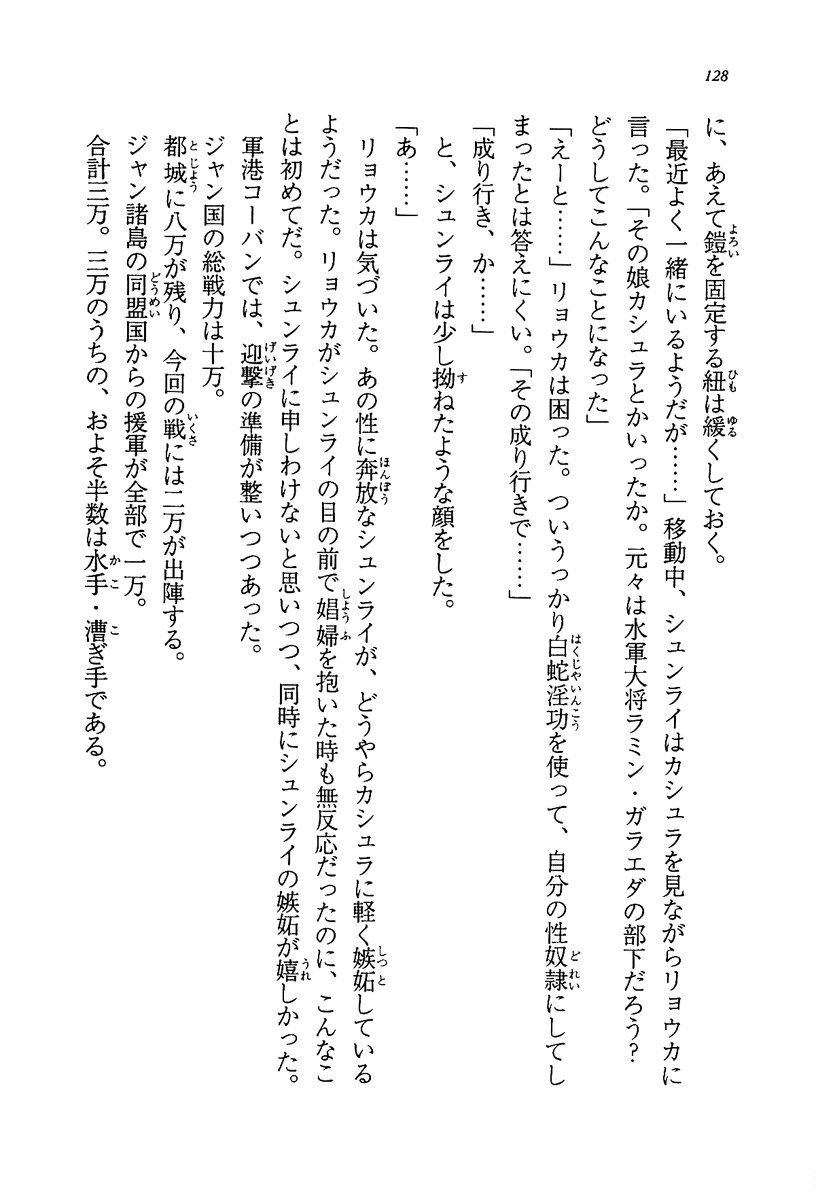 128
に、あえて鎧を固定する紐は緩くしておく。
「最近よく一緒にいるようだが……」移動中、シュンライはカシュラを見ながらリョウカに
言った。「その娘カシュラとかいったか。元々は水軍大将ラミン・ガラエダの部下だろう？
どうしてこんなことになった」
「えーと……」リョウカは困った。ついうっかり白蛇淫功を使って、自分の性奴隷にしてし
まったとは答えにくい。「その成り行きで……」
「成り行き、か……」
と、シュンライは少し拗ねたような顔をした。
「あ……」
リョウカは気づいた。あの性に奔放なシュンライが、どうやらカシュラに軽く嫉妬している
ようだった。リョウカがシュンライの目の前で娼婦を抱いた時も無反応だったのに、こんなこ
とは初めてだ。シュンライに申しわけないと思いつつ、同時にシュンライの嫉妬が嬉しかった。
軍港コーバンでは、迎撃の準備が整いつつあった。
ジャン国の総戦力は十万。
都城に八万が残り、今回の戦には二万が出陣する。
ジャン諸島の同盟国からの援軍が全部で一万。
合計三万。三万のうちの、およそ半数は水手・漕ぎ手である。